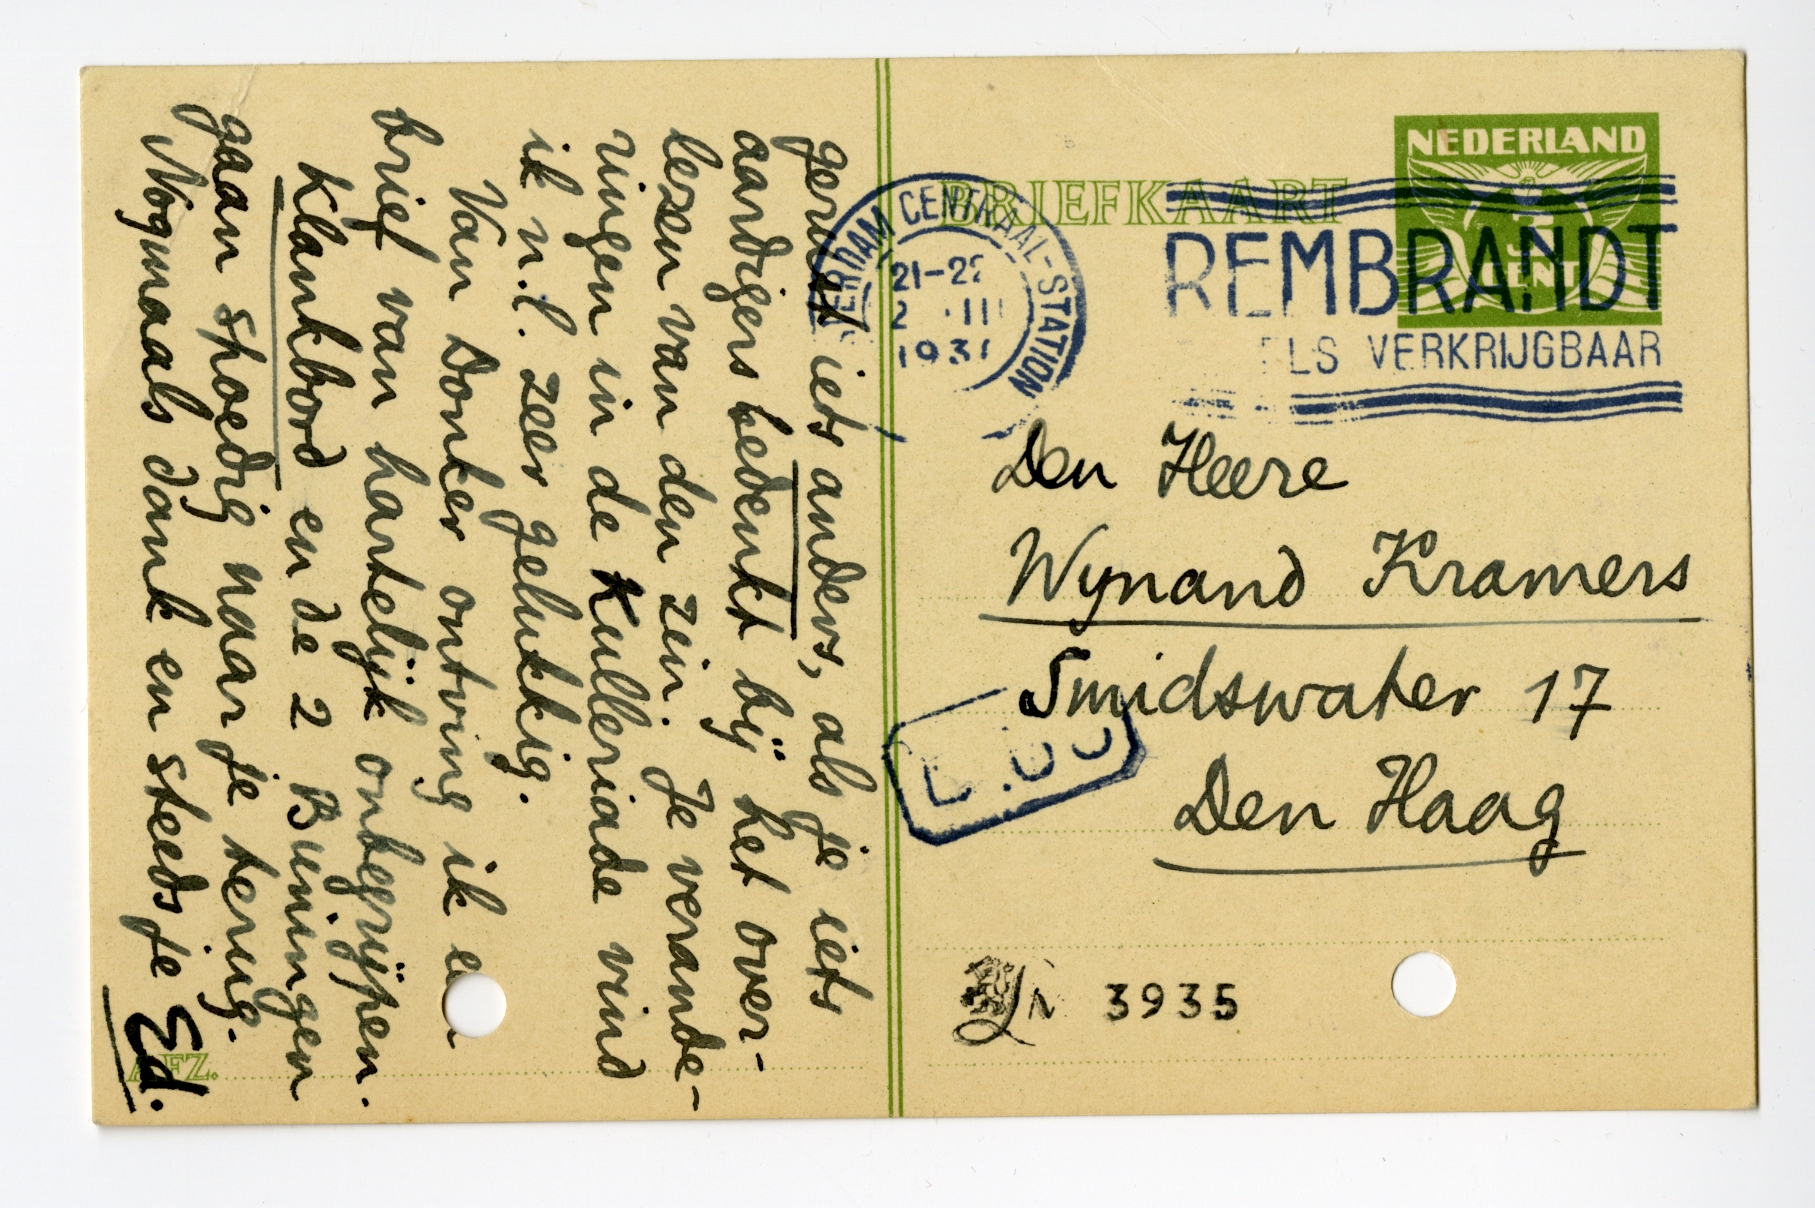 gerust iets anders, als je iets
aardigers bedenkt bij het over-
lezen van den zin. Je verande-
ringen in de Kulleriade vind
ik n.l. zeer gelukkig.
Van Donker ontving ik
brief van hartelijk onbegrijpen.
Klankbord en de 2 Buningen
gaan spoedig naar je terug.
Nogmaals dank en steeds je Ed.
AFZ.
BRIEFKAART
NEDERLAND
CENT
CENTRAAL-STATION
21-22
III
193
REMBRANDT
VERKRIJGBAAR
Den Heere
Wynand Kramers
Smidswater 17
Den Haag
3935